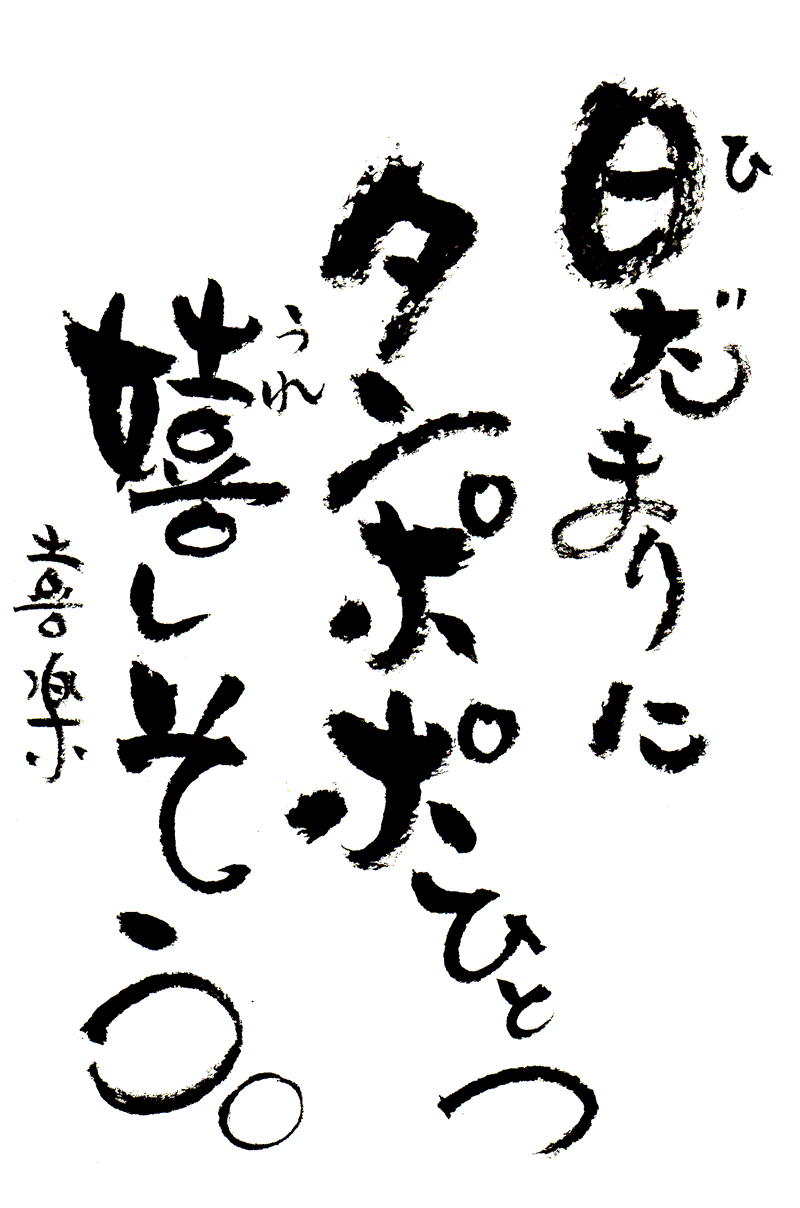 日だまりに
ひ
タンポポひとつ
嬉しそう。
うれ
喜楽